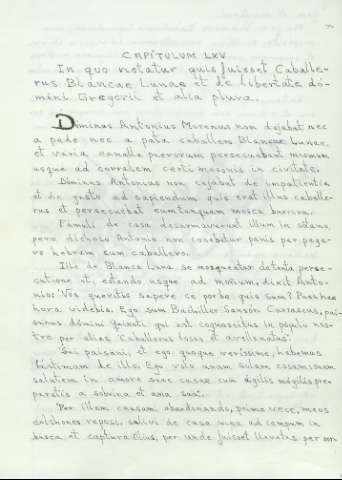 CAPITULUM LXV
In quo notatur quis fuisset Caballe-
rus Blancae Lunae et de libertate do-
mini Gregorii et alia plura.
Dominus Antonius Morenus non dejabat nec
a pede nec a pata caballero Blancae Lunae,
et varia canalla puerorum persecuebant
usque ad corralem certi mesonis in civitate.
Dominus Antonius non cajabat de impatientia
et de gusto ad sapiendum quis erat illus caballe-
rus et persecuebat eum tanquam mosca burrora.
Famuli de casa desarmaverunt illum in sotano,
pero dichoso Antonio non cocebitur panis per pega-
re hebram cum caballero.
Ille de Blanca Luna se mosqueatur de tanta perse-
cutione et, estando usque ad monum, dixit Anto-
nio: Vos queritis sapere ce por be quis sum? Pues hac
hora videbis. Ego sum Bachiller Sansón Carrascus, pai-
sanus domini Quixoti qui est cognoscitus in populo nos-
tro per alias "Caballerus locus et avellanatus".
Sui paisani, et ego quoque verissime, habemus
lastimam de illo. Ego volo anam solam casam suam
salutem in amore suae casae cum
paratiis a sobrina et ama sua.
Per illam causam, abandonando, prima vece, meos
colshones reposi, salivi de casa mea ad campum in
busca et captura eius, per unde fuisset llevatus per